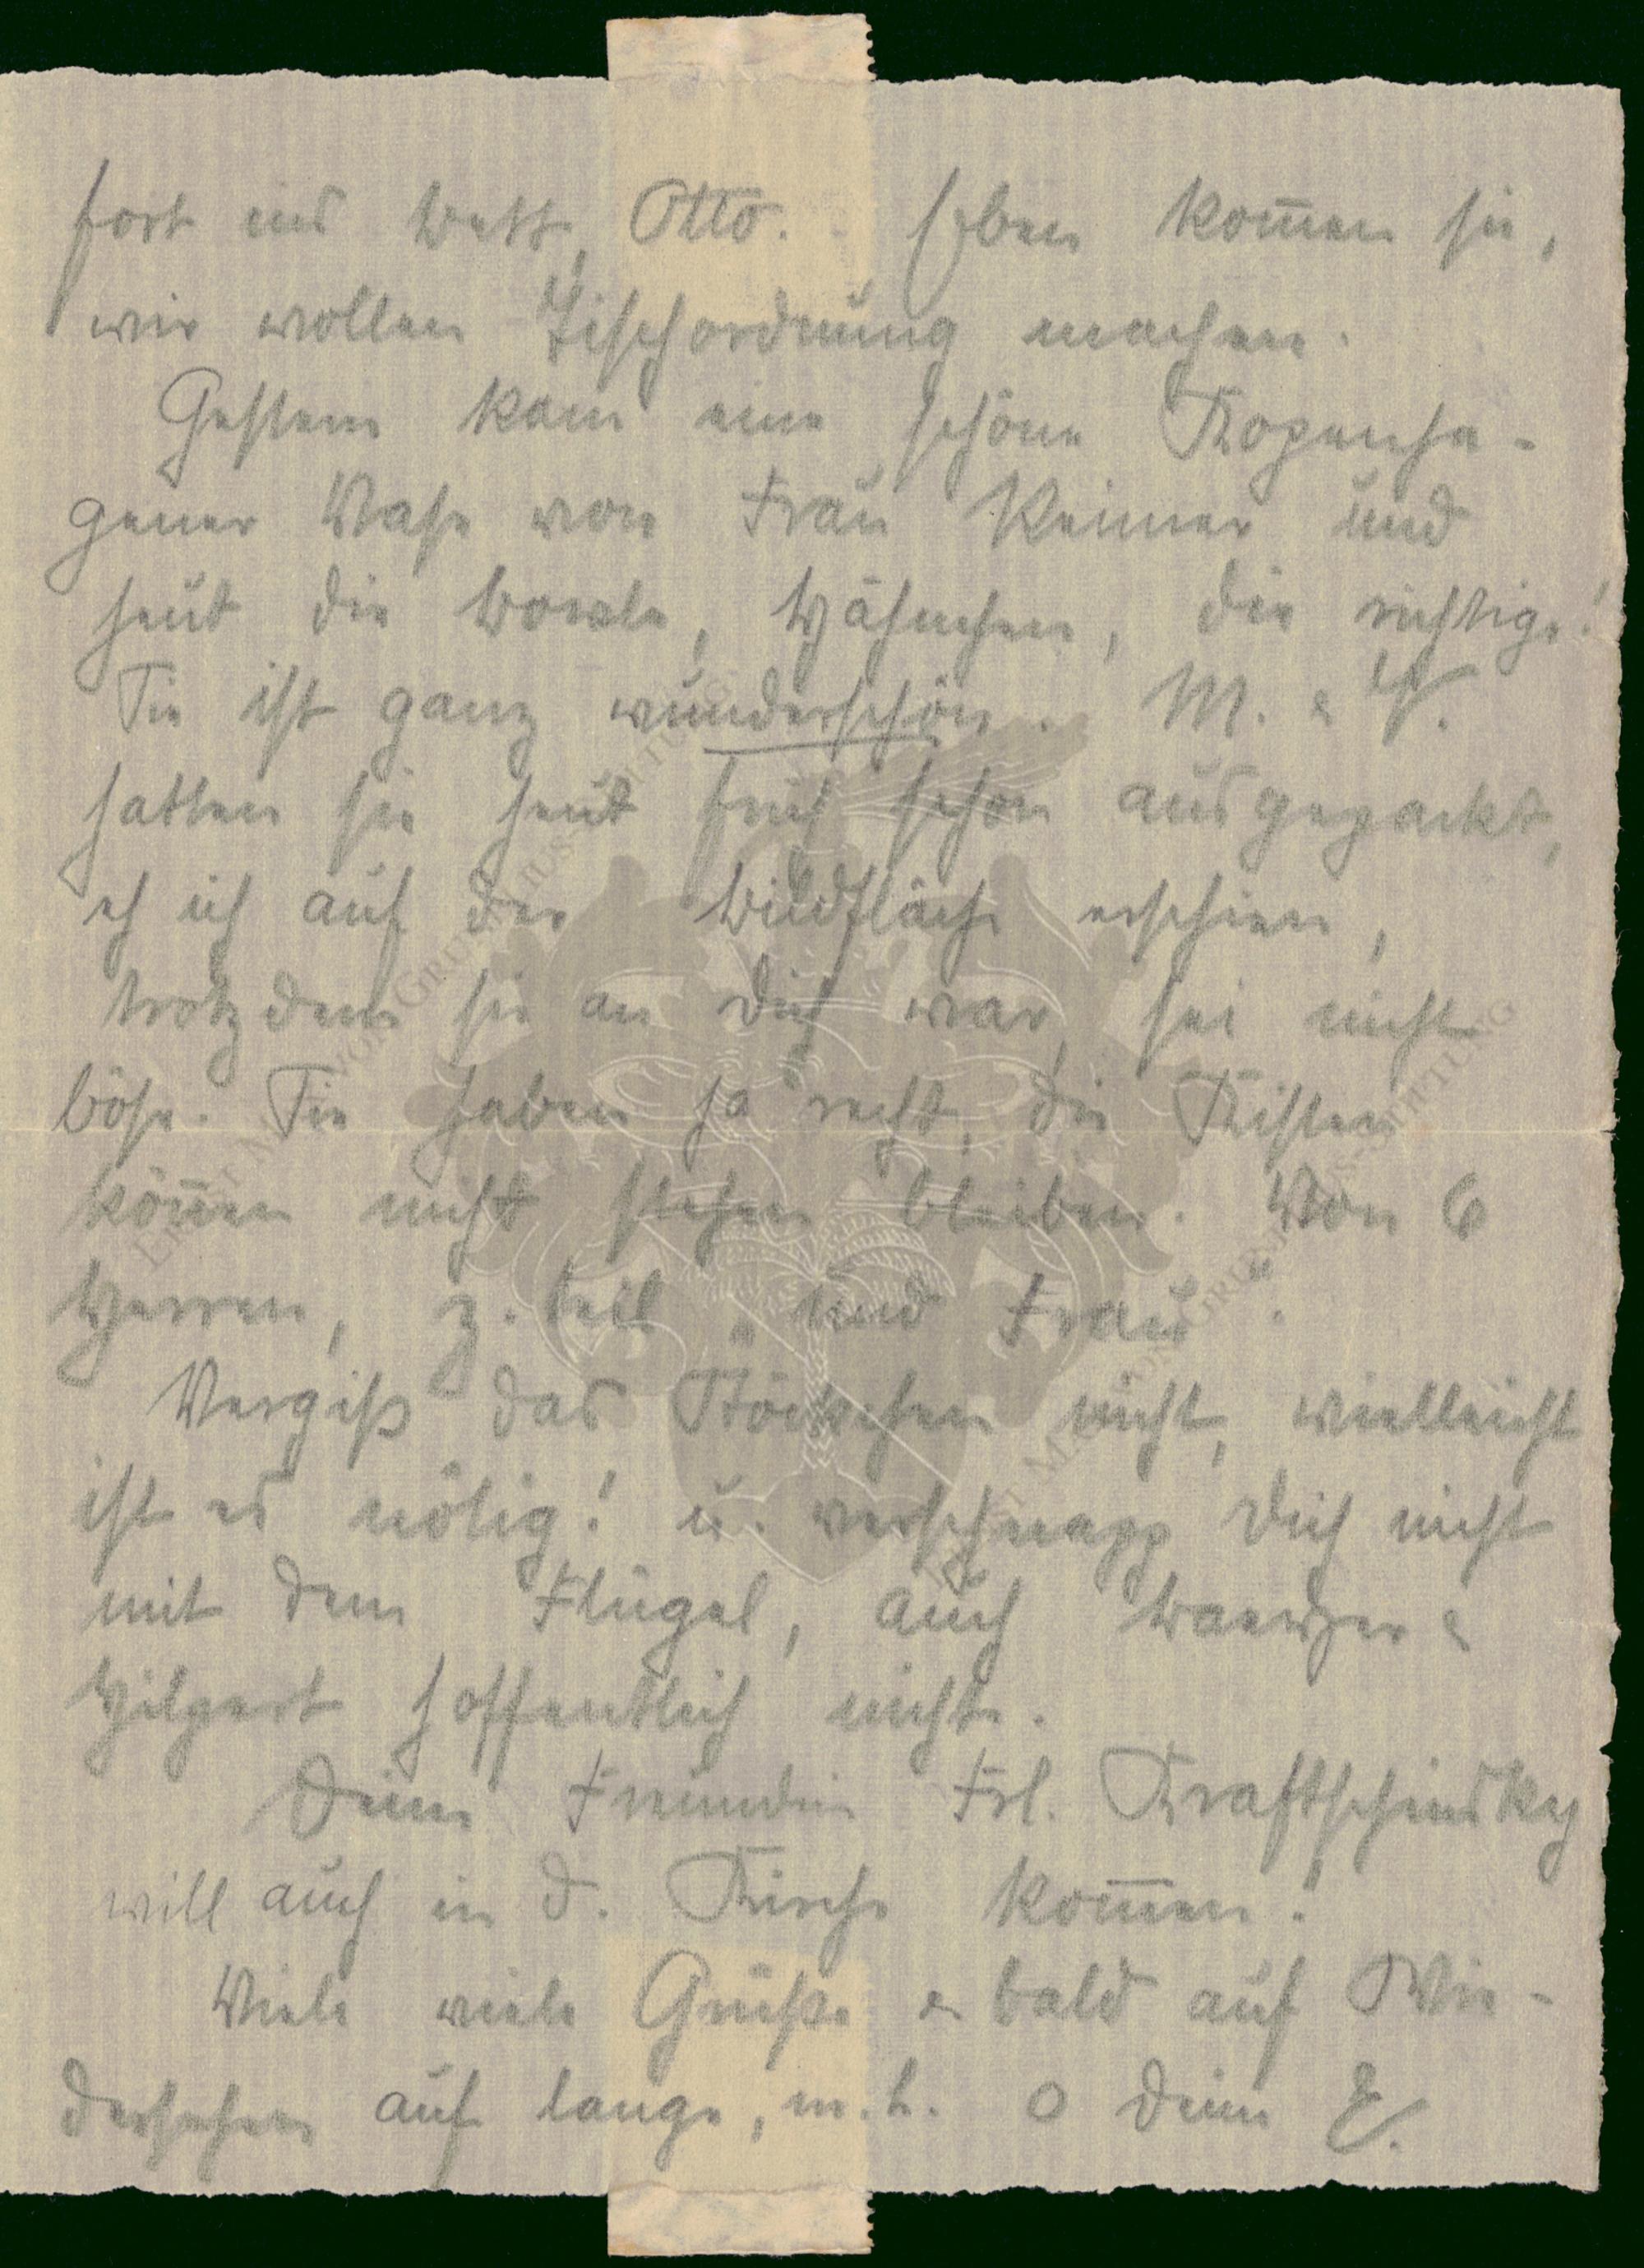 fort ins Bett, Otto. - Eben kom̄en sie,
wir wollen Tischordnung machen.
Gestern kam eine schöne Kopenha-
gener Vase von Frau Reimer und
heut die Bowle, Hähnchen, die richtige!
Sie ist ganz wunderschön. M. & V.
hatten sie heut früh schon ausgepackt,
eh ich auf der Bildfläche erschien,
trotzdem sie an Dich war, sei nicht
böse. Sie haben ja recht, die Kisten
kön̄en nicht stehen bleiben. Von 6
Herren, z. teil „und Frau".
Vergiß das Röckchen nicht, vielleicht
ist es nötig! u. verschnapp Dich nicht
mit dem Flügel, auch &
Hilgert hoffentlich nicht.
Deine Freundin Frl. Kraftschinsky
will auch in d. Kirche kom̄en!
Viele viele Grüße & bald auf Wie-
dersehen auf lange, m. l. O Deine E.
ERNST MAX VON GRUNELIUS-STIFTUNG
ERNST MAX VON GRUNELIUS-STIFTUNG